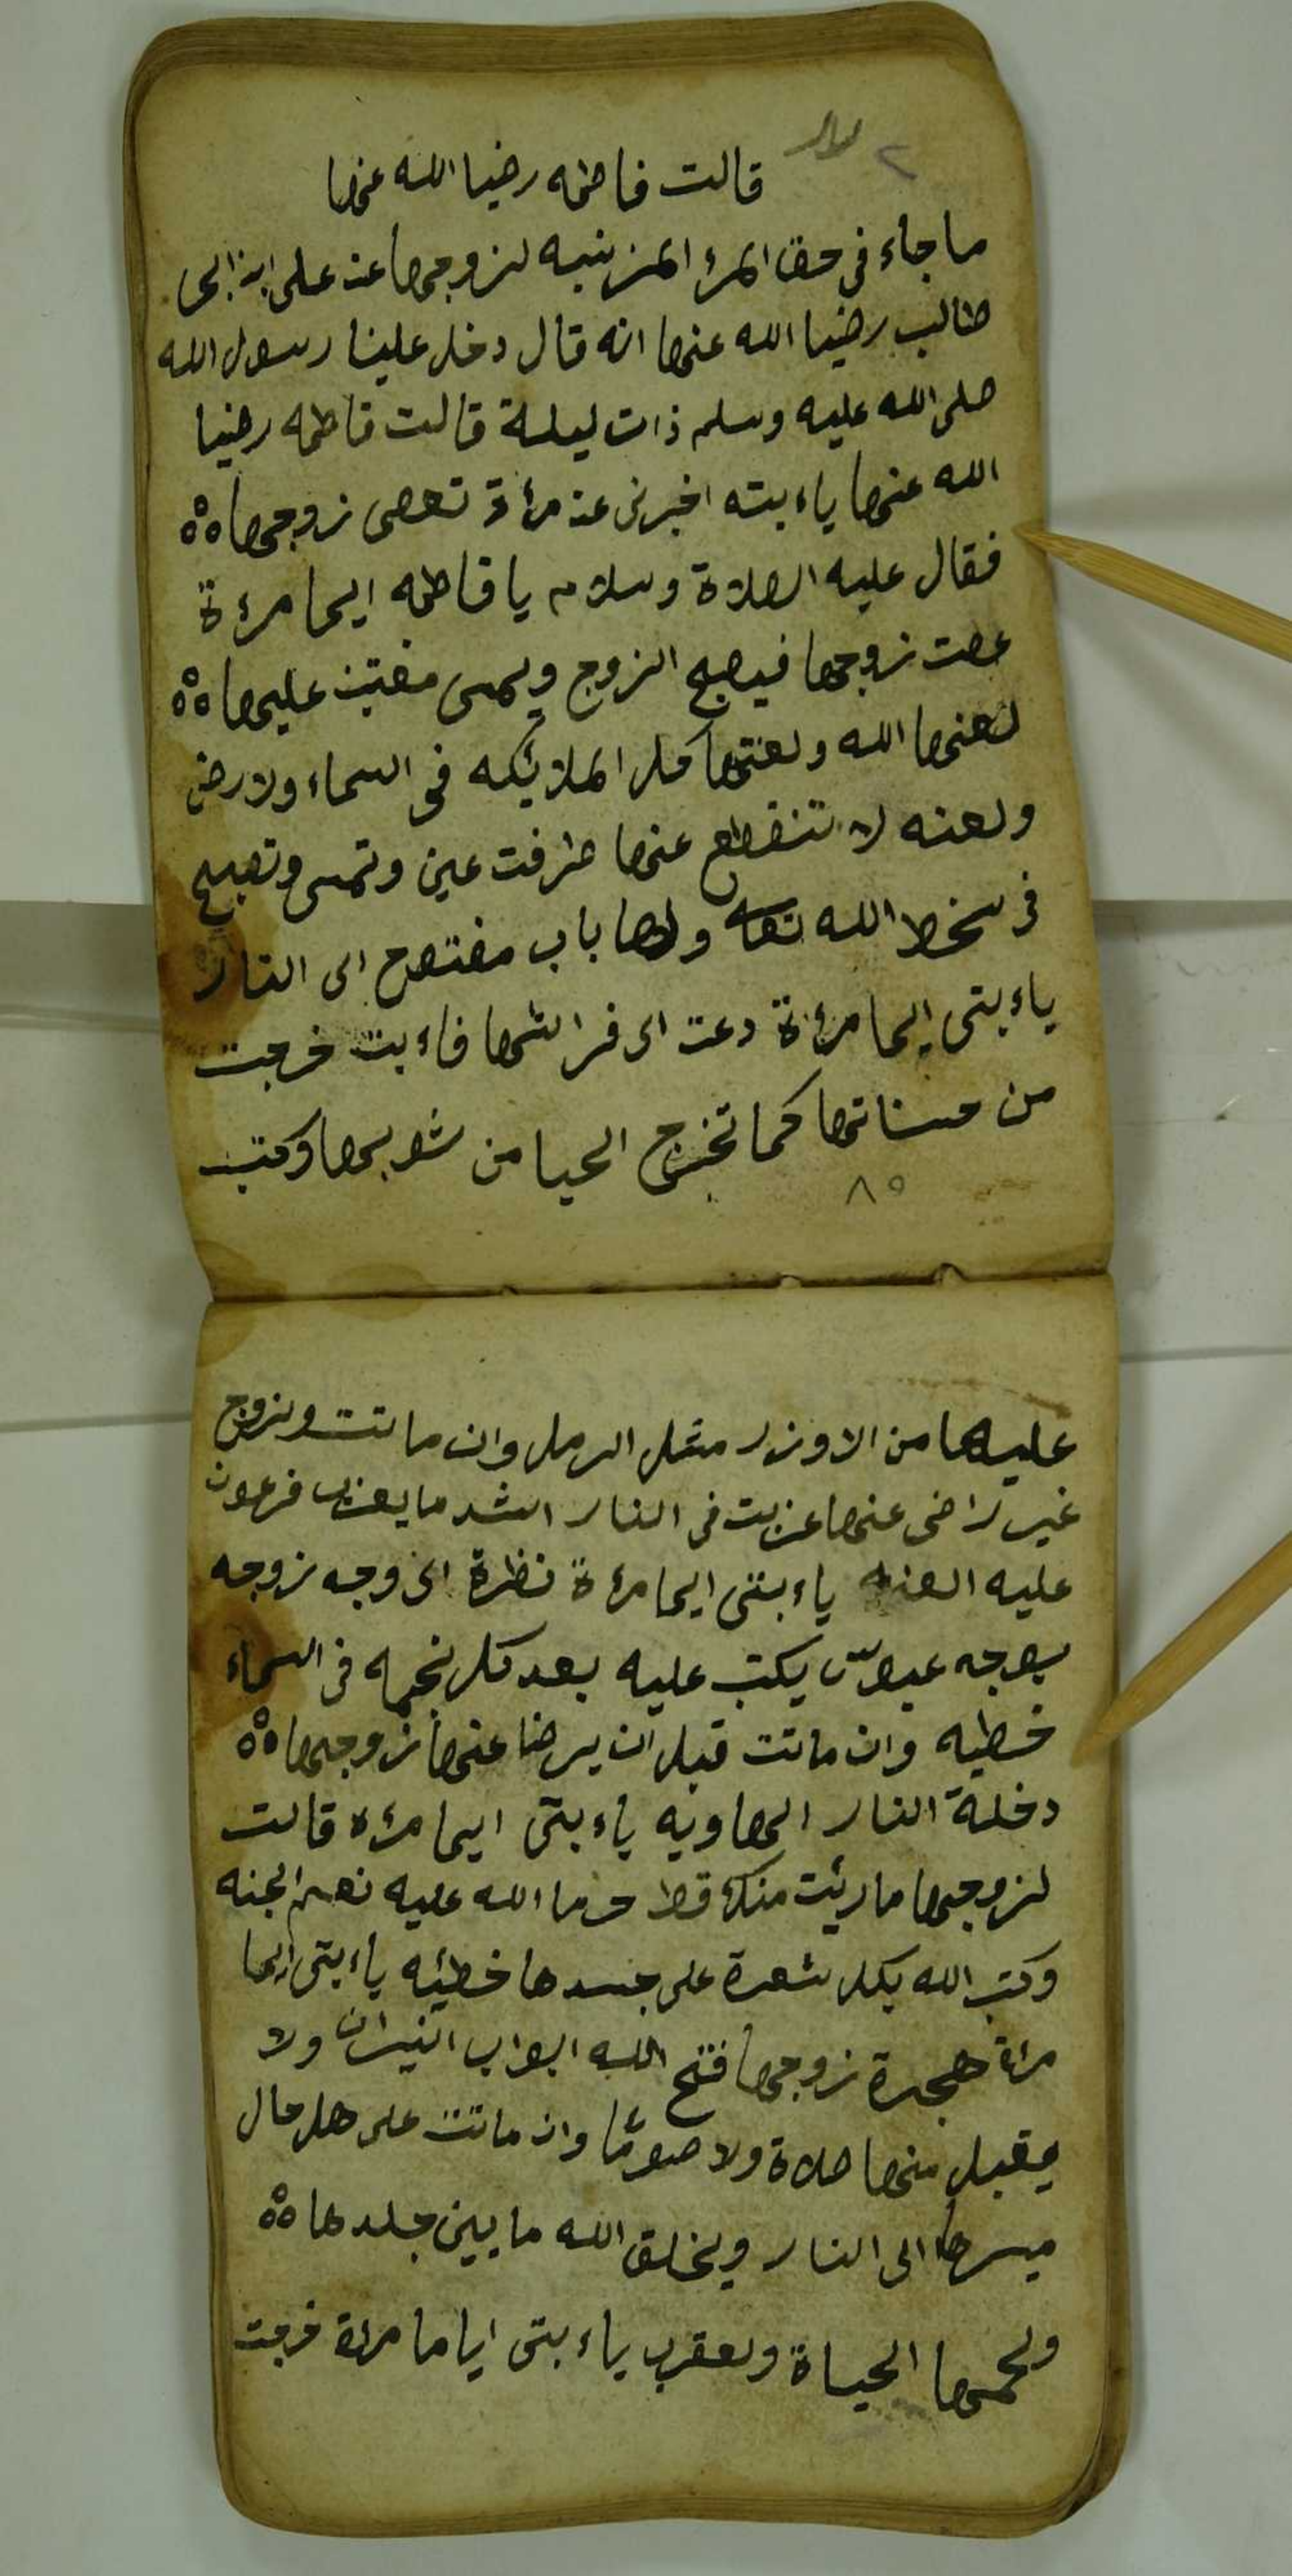 ٢
قالت فاطمه رضيا الله عنها
ما جاء فى حق المرا المزينيه لزوجها عن على ابن ابى
طالب رضيا الله عنها انه قال دخل علينا رسول الله
صلى الله عليه وسلم ذات ليلة قالت فاطمه رضيا
الله عنها ياء بته اخبرنى عن مرءة تعصى زوجها
فقال عليه الصلاة وسلام يا فاطمه ايها مرءة
عصت زوجها فيصبح الزوج ويمسى مغتبن عليها
لعنها الله ولعنتها كل الملائيكه فى السماء ولارض
ولعنه لا تنقطع عنها طرفت عين وتمسى وتصبح
فى سخط الله تعا ولها باب مفتوح الى النار
ياء بتى ايها مرءة دعت الى فراشها فاء بت خرجت
من حسناتها كما تخرج الحيا من ثوبها وكتب
٨٥
عليها من الاوزر مثل الرمل وان ماتت ولزوج
غير راضى عنها عزبت فى النار اشد ما يعزب فرعون
عليه العنه ياء بتى ايها مرءة نظرة الى وجه زوجه
بوجه عبوس يكتب عليه بعد كل نجمه فى السماء
خطيه وان ماتت قبل ان يرضا عنها زوجها
دخلة النار الهاويه ياء بتى ايها مرءه قالت
لزوجها ما ريئت منك قط حرما الله عليه نعيم الجنه
وكتب الله بكل شعرة على جسدها خطيئه ياء بتى ايها
مراة هجرة زوجها فتح الله ابواب النيران ولا
يقبل منها صلاة ولا صومًا وان ماتت على هل حال
ميسرها الى النار ويخلق الله ما بين جلدها
ولحمها الحياة ولعقرب ياء بتى اياما مراة خرجت